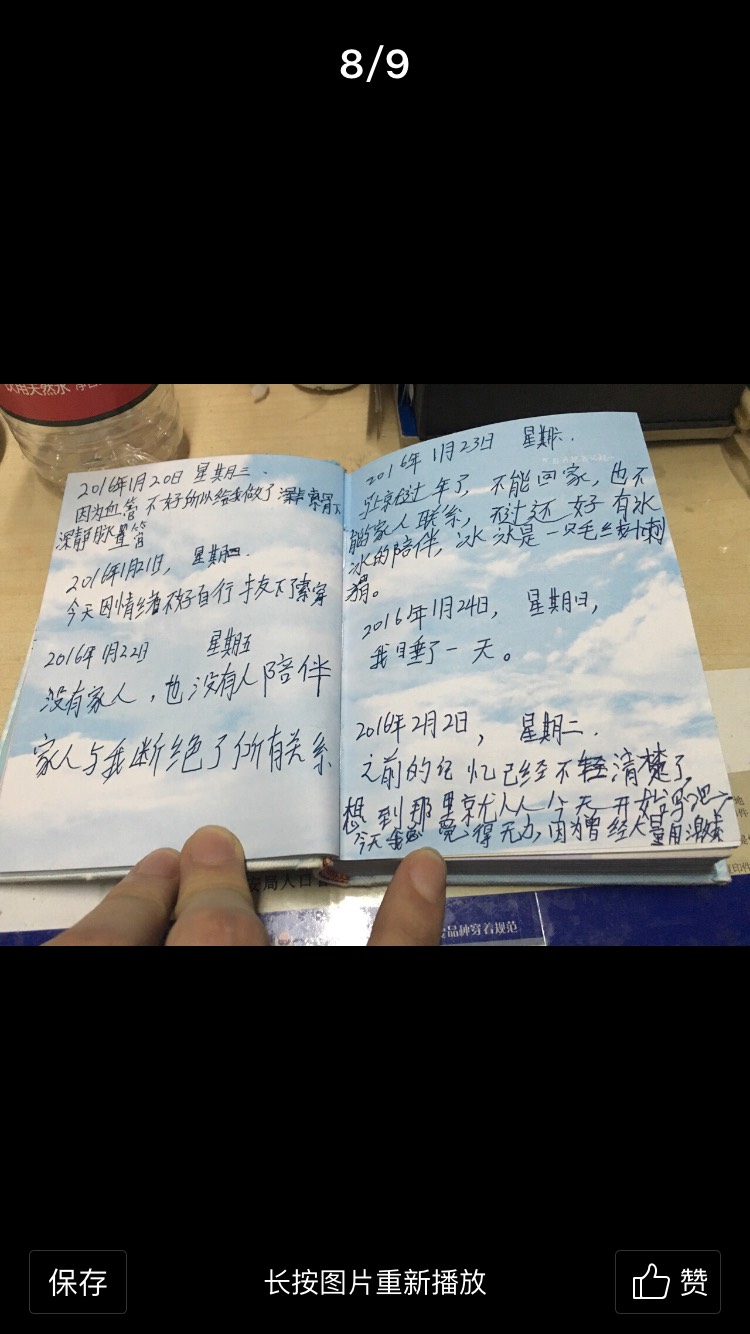 8/9
饮用天然水
2016年1月20日 星期三.
因为血管不好所以给我做了深点索骨下
深静脉置管
2016年1月21日, 星期四.
今天因情绪不好自行手友下了索穿
2016年1月22日 星期五
没有家人，也没有人陪伴
家人与我断绝了所有关系
2016年1月23日 星期六.
马上就过年了，不能回家，也不
能家人联系，不过还好有冰
冰的陪伴，冰冰是一只毛绒刺
猬。
2016年1月24日, 星期日,
我睡了一天。
2016年2月2日, 星期二.
之前的纪忆已经不轻清楚了
想到那里就从今天开始写吧
今天我觉得无力，因为曾经大量用激素
安局人口
品种穿着规范
保存
长按图片重新播放
赞